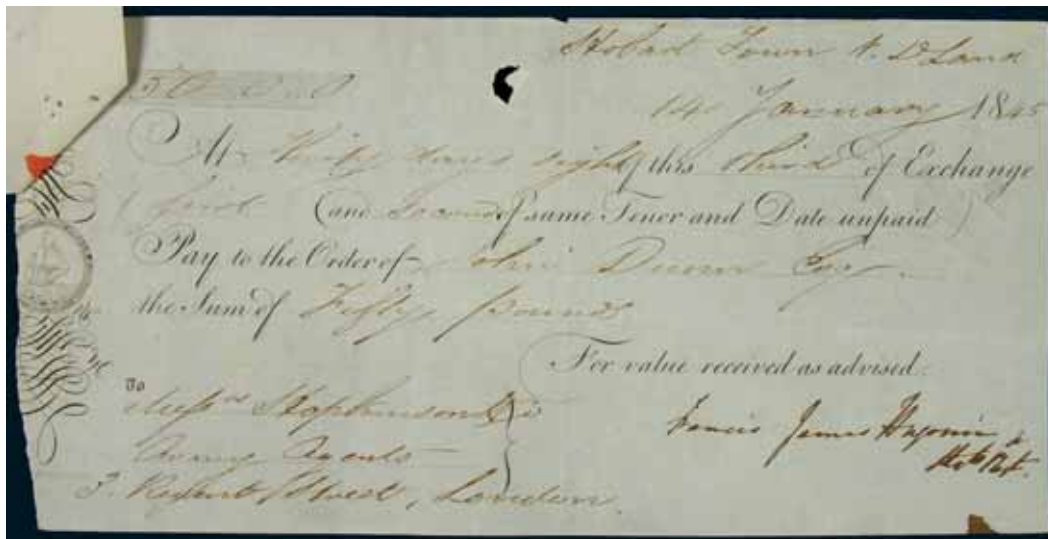 Hobart Town V. D Land
50 - 0 - 0
14 January 1845
At Thirty days sight of this Third of Exchange
(first (and Second of same Tenor and Date unpaid)
Pay to the Order of John Dunn Esqr
the Sum of Fifty pounds
For value received as advised.
To
Messrs
Army Agents
Francis James Hugonin
Regent Street, London.